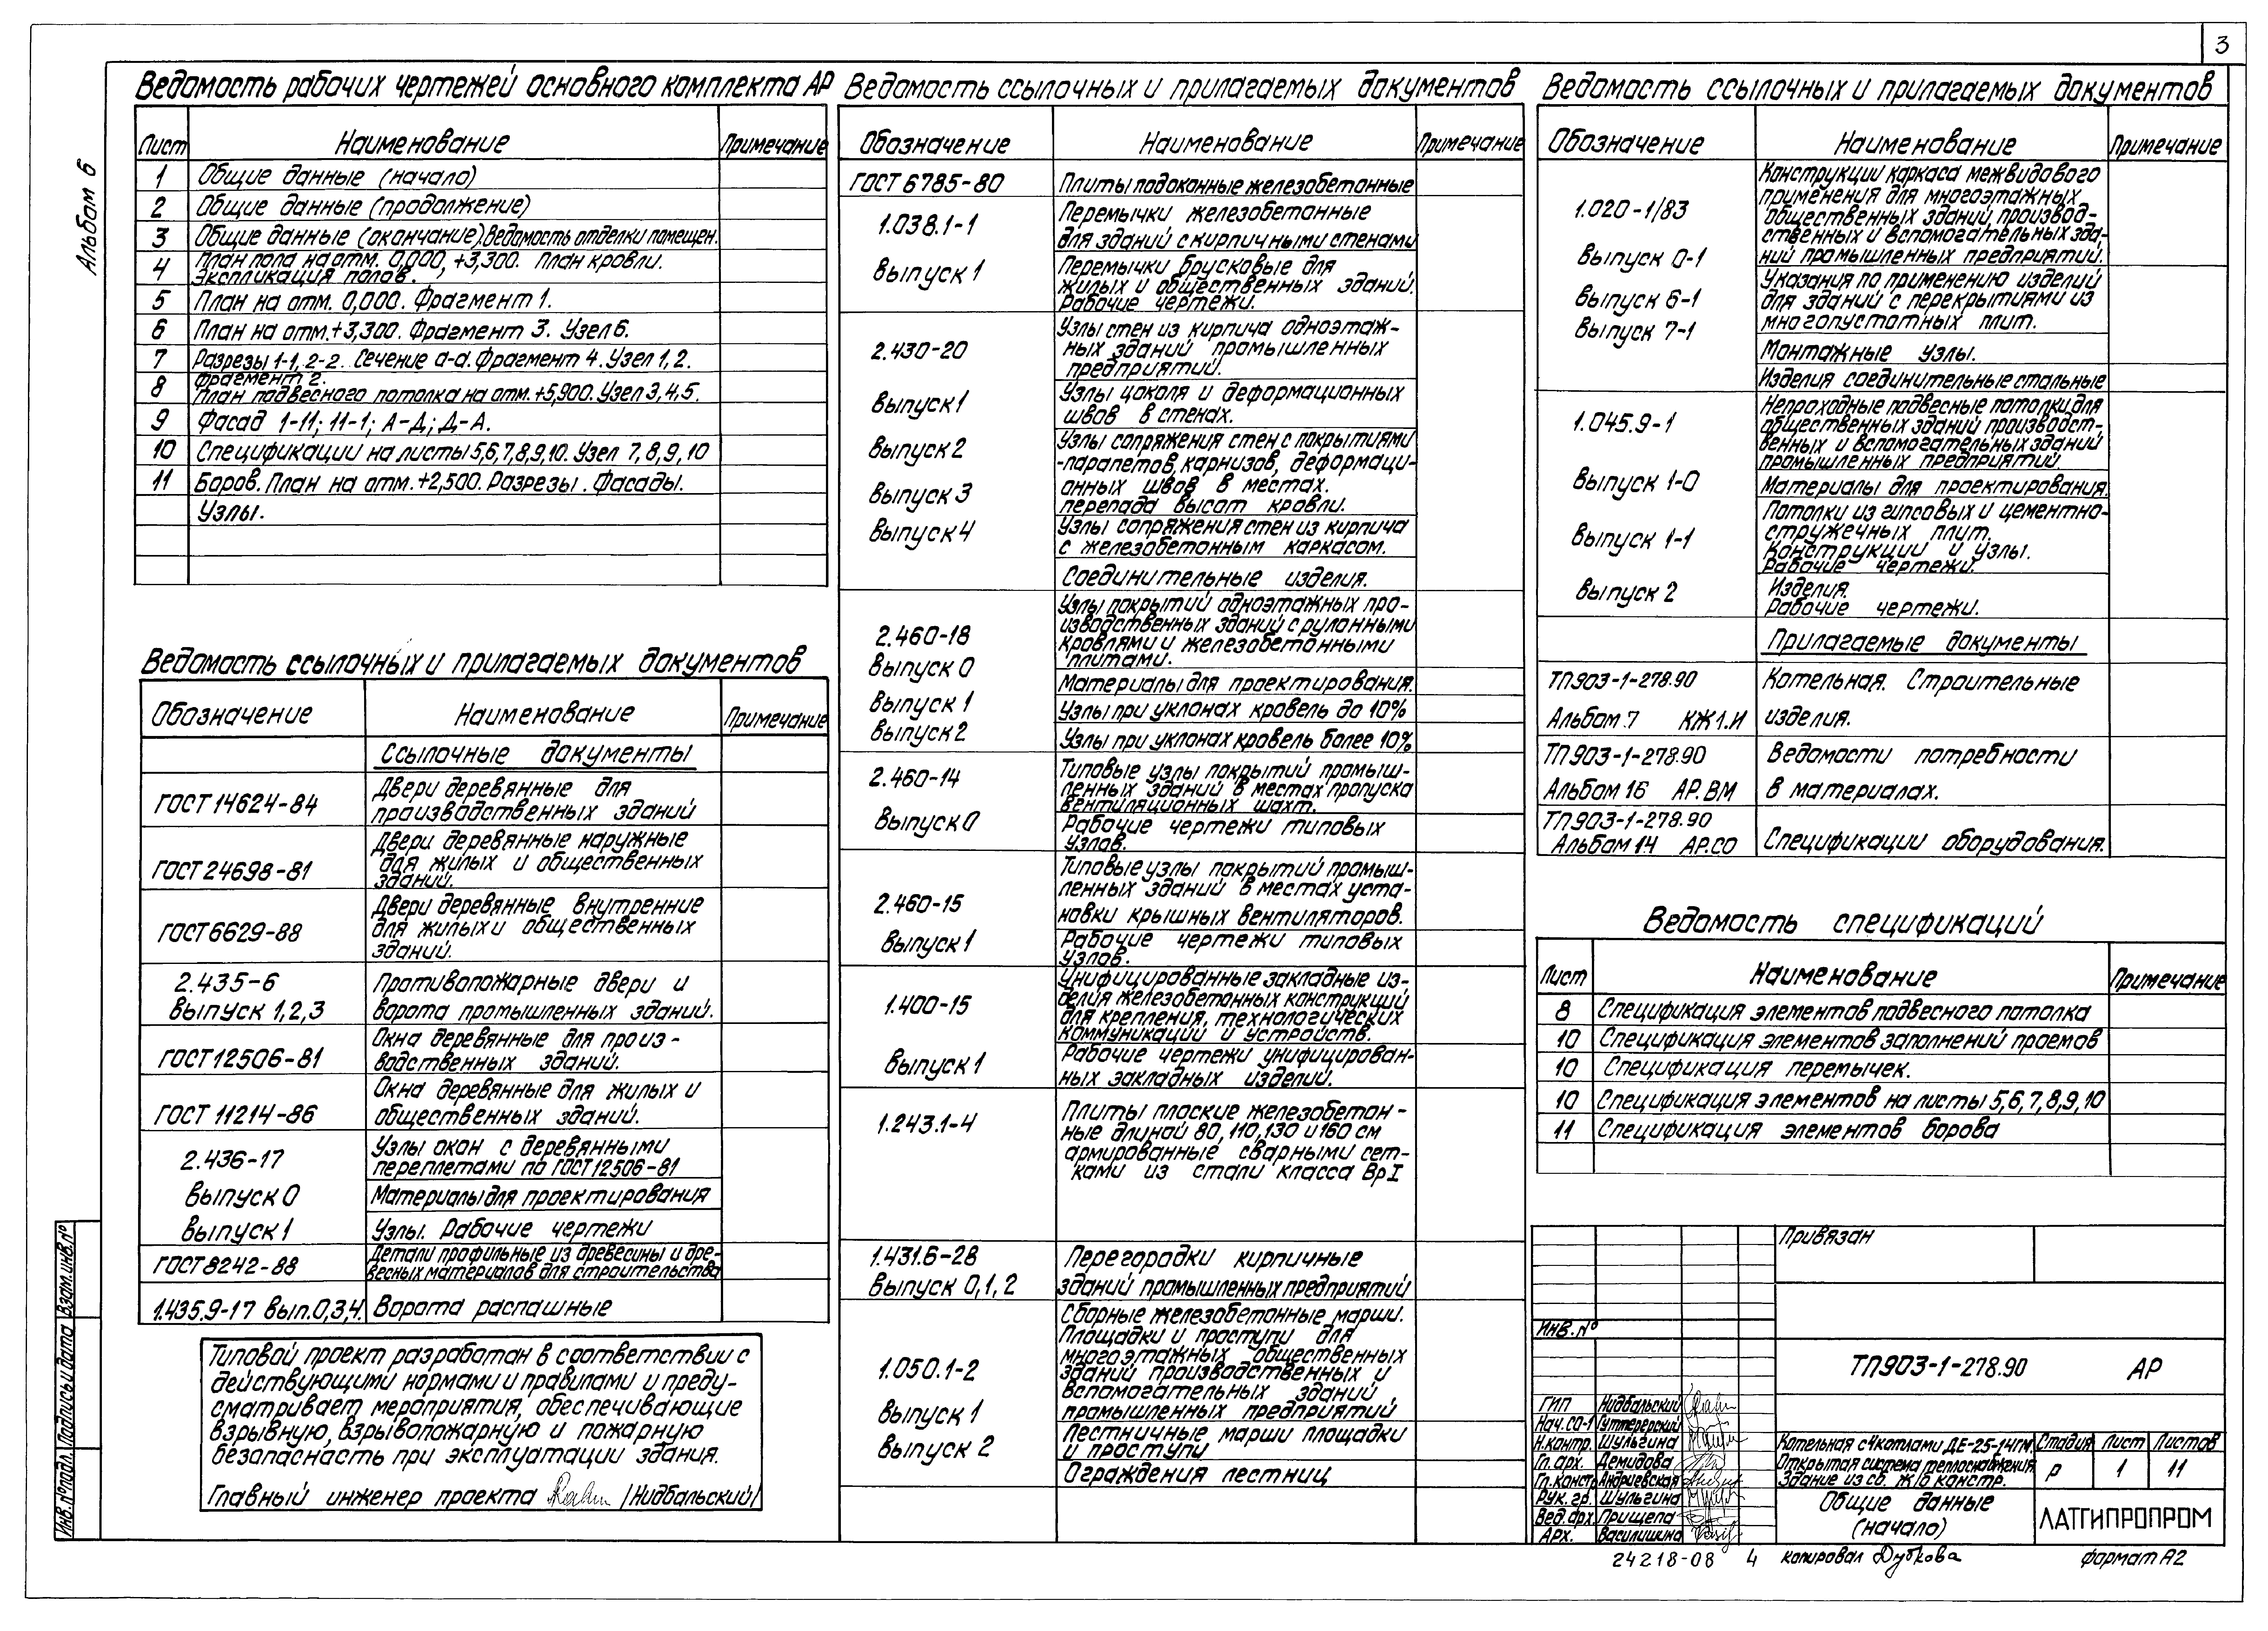 3
Альбом 6
Ведомость рабочих чертежей основного комплекта АР
Лист Наименование Примечание
1 Общие данные (начало)
2 Общие данные (продолжение)
3 Общие данные (окончание). Ведомость отделки помещен.
4 План пола на отм. 0,000, +3,300. План кровли.
Экспликация полов.
5 План на отм. 0,000. Фрагмент 1.
6 План на отм. +3,300. Фрагмент 3. Узел 6.
7 Разрезы 1-1, 2-2. Сечение а-а. Фрагмент 4. Узел 1, 2.
8 Фрагмент 2.
План подвесного потолка на отм. +5,900. Узел 3, 4, 5.
9 Фасад 1-11; 11-1; А-Д; Д-А.
10 Спецификации на листы 5,6,7,8,9,10. Узел 7, 8, 9, 10
11 Боров. План на отм. +2,500. Разрезы. Фасады.
Узлы.
Ведомость ссылочных и прилагаемых документов
Обозначение Наименование Примечание
Ссылочные документы
ГОСТ 14624-84 Двери деревянные для
производственных зданий
ГОСТ 24698-81 Двери деревянные наружные
для жилых и общественных
зданий.
ГОСТ 6629-88 Двери деревянные внутренние
для жилых и общественных
зданий.
2.435-6 Противопожарные двери и
выпуск 1,2,3 ворота промышленных зданий.
ГОСТ 12506-81 Окна деревянные для произ-
водственных зданий.
ГОСТ 11214-86 Окна деревянные для жилых и
общественных зданий.
2.436-17 Узлы окон с деревянными
переплетами по ГОСТ 12506-81
выпуск 0 Материалы для проектирования
выпуск 1 Узлы. Рабочие чертежи
ГОСТ 8242-88 Детали профильные из древесины и дре-
весных материалов для строительства
1.435.9-17 вып.0,3,4. Ворота распашные
Типовой проект разработан в соответствии с
действующими нормами и правилами и преду-
сматривает мероприятия, обеспечивающие
взрывную, взрывопожарную и пожарную
безопасность при эксплуатации здания.
Главный инженер проекта /Нидбальский/
Ведомость ссылочных и прилагаемых документов
Обозначение Наименование Примечание
ГОСТ 6785-80 Плиты подоконные железобетонные
1.038.1-1 Перемычки железобетонные
для зданий с кирпичными стенами
выпуск 1 Перемычки брусковые для
жилых и общественных зданий.
Рабочие чертежи.
2.430-20 Узлы стен из кирпича одноэтаж-
ных зданий промышленных
предприятий.
выпуск 1 Узлы цоколя и деформационных
швов в стенах.
выпуск 2 Узлы сопряжения стен с покрытиями
-парапетов, карнизов, деформаци-
выпуск 3 онных швов в местах.
перепада высот кровли.
выпуск 4 Узлы сопряжения стен из кирпича
с железобетонным каркасом.
Соединительные изделия.
2.460-18 Узлы покрытий одноэтажных про-
изводственных зданий с рулонными
кровлями и железобетонными
плитами.
выпуск 0 Материалы для проектирования.
выпуск 1 Узлы при уклонах кровель до 10%
выпуск 2 Узлы при уклонах кровель более 10%
2.460-14 Типовые узлы покрытий промыш-
ленных зданий в местах пропуска
вентиляционных шахт.
выпуск 0 Рабочие чертежи типовых
узлов.
2.460-15 Типовые узлы покрытий промыш-
ленных зданий в местах уста-
новки крышных вентиляторов.
выпуск 1 Рабочие чертежи типовых
узлов.
1.400-15 Унифицированные закладные из-
делия железобетонных конструкций
для крепления, технологических
коммуникаций и устройств.
выпуск 1 Рабочие чертежи унифицирован-
ных закладных изделий.
1.243.1-4 Плиты плоские железобетон-
ные длиной 80, 110, 130 и 160 см
армированные сварными сет-
ками из стали класса Вр I
1.431.6-28 Перегородки кирпичные
выпуск 0,1,2 зданий промышленных предприятий
1.050.1-2 Сборные железобетонные марши.
Площадки и проступи для
многоэтажных общественных
зданий производственных и
вспомогательных зданий
промышленных предприятий
выпуск 1 Лестничные марши площадки
и проступи
выпуск 2 Ограждения лестниц
Ведомость ссылочных и прилагаемых документов
Обозначение Наименование Примечание
1.020-1/83 Конструкции каркаса межвидового
применения для многоэтажных
общественных зданий, производ-
ственных и вспомогательных зда-
ний промышленных предприятий.
выпуск 0-1 Указания по применению изделий
выпуск 6-1 для зданий с перекрытиями из
многопустотных плит.
выпуск 7-1 Монтажные узлы.
Изделия соединительные стальные
1.045.9-1 Непроходные подвесные потолки для
общественных зданий производст-
венных и вспомогательных зданий
промышленных предприятий.
выпуск 1-0 Материалы для проектирования.
выпуск 1-1 Потолки из гипсовых и цементно-
стружечных плит.
Конструкции и узлы.
Рабочие чертежи.
выпуск 2 Изделия.
Рабочие чертежи.
Прилагаемые документы
ТП903-1-278.90 Котельная. Строительные
Альбом 7 КЖ1.И изделия.
ТП903-1-278.90 Ведомости потребности
Альбом 16 АР.ВМ в материалах.
ТП903-1-278.90
Альбом 14 АР.СО Спецификации оборудования.
Ведомость спецификаций
Лист Наименование Примечание
8 Спецификация элементов подвесного потолка
10 Спецификация элементов заполнений проемов
10 Спецификация перемычек.
10 Спецификация элементов на листы 5,6,7,8,9,10
11 Спецификация элементов борова
Привязан
Инв. №
ТП903-1-278.90 АР
ГИП Нидбальский
Нач. СО-1 Гуттерерский
Н.контр. Шульгина
Гл. арх. Демидова
Гл. констр. Андриевская
Рук. гр. Шульгина
Вед. арх. Прищепа
Арх. Василишина
Котельная с 4 котлами ДЕ-25-14ГМ.
Открытая система теплоснабжения
Здание из сб. ж/б констр.
Стадия Лист Листов
Р 1 11
Общие данные
(начало)
ЛАТГИПРОПРОМ
24218-08 4 копировал Дубкова формат А2
Инв. № подл. Подпись и дата Взам. инв. №